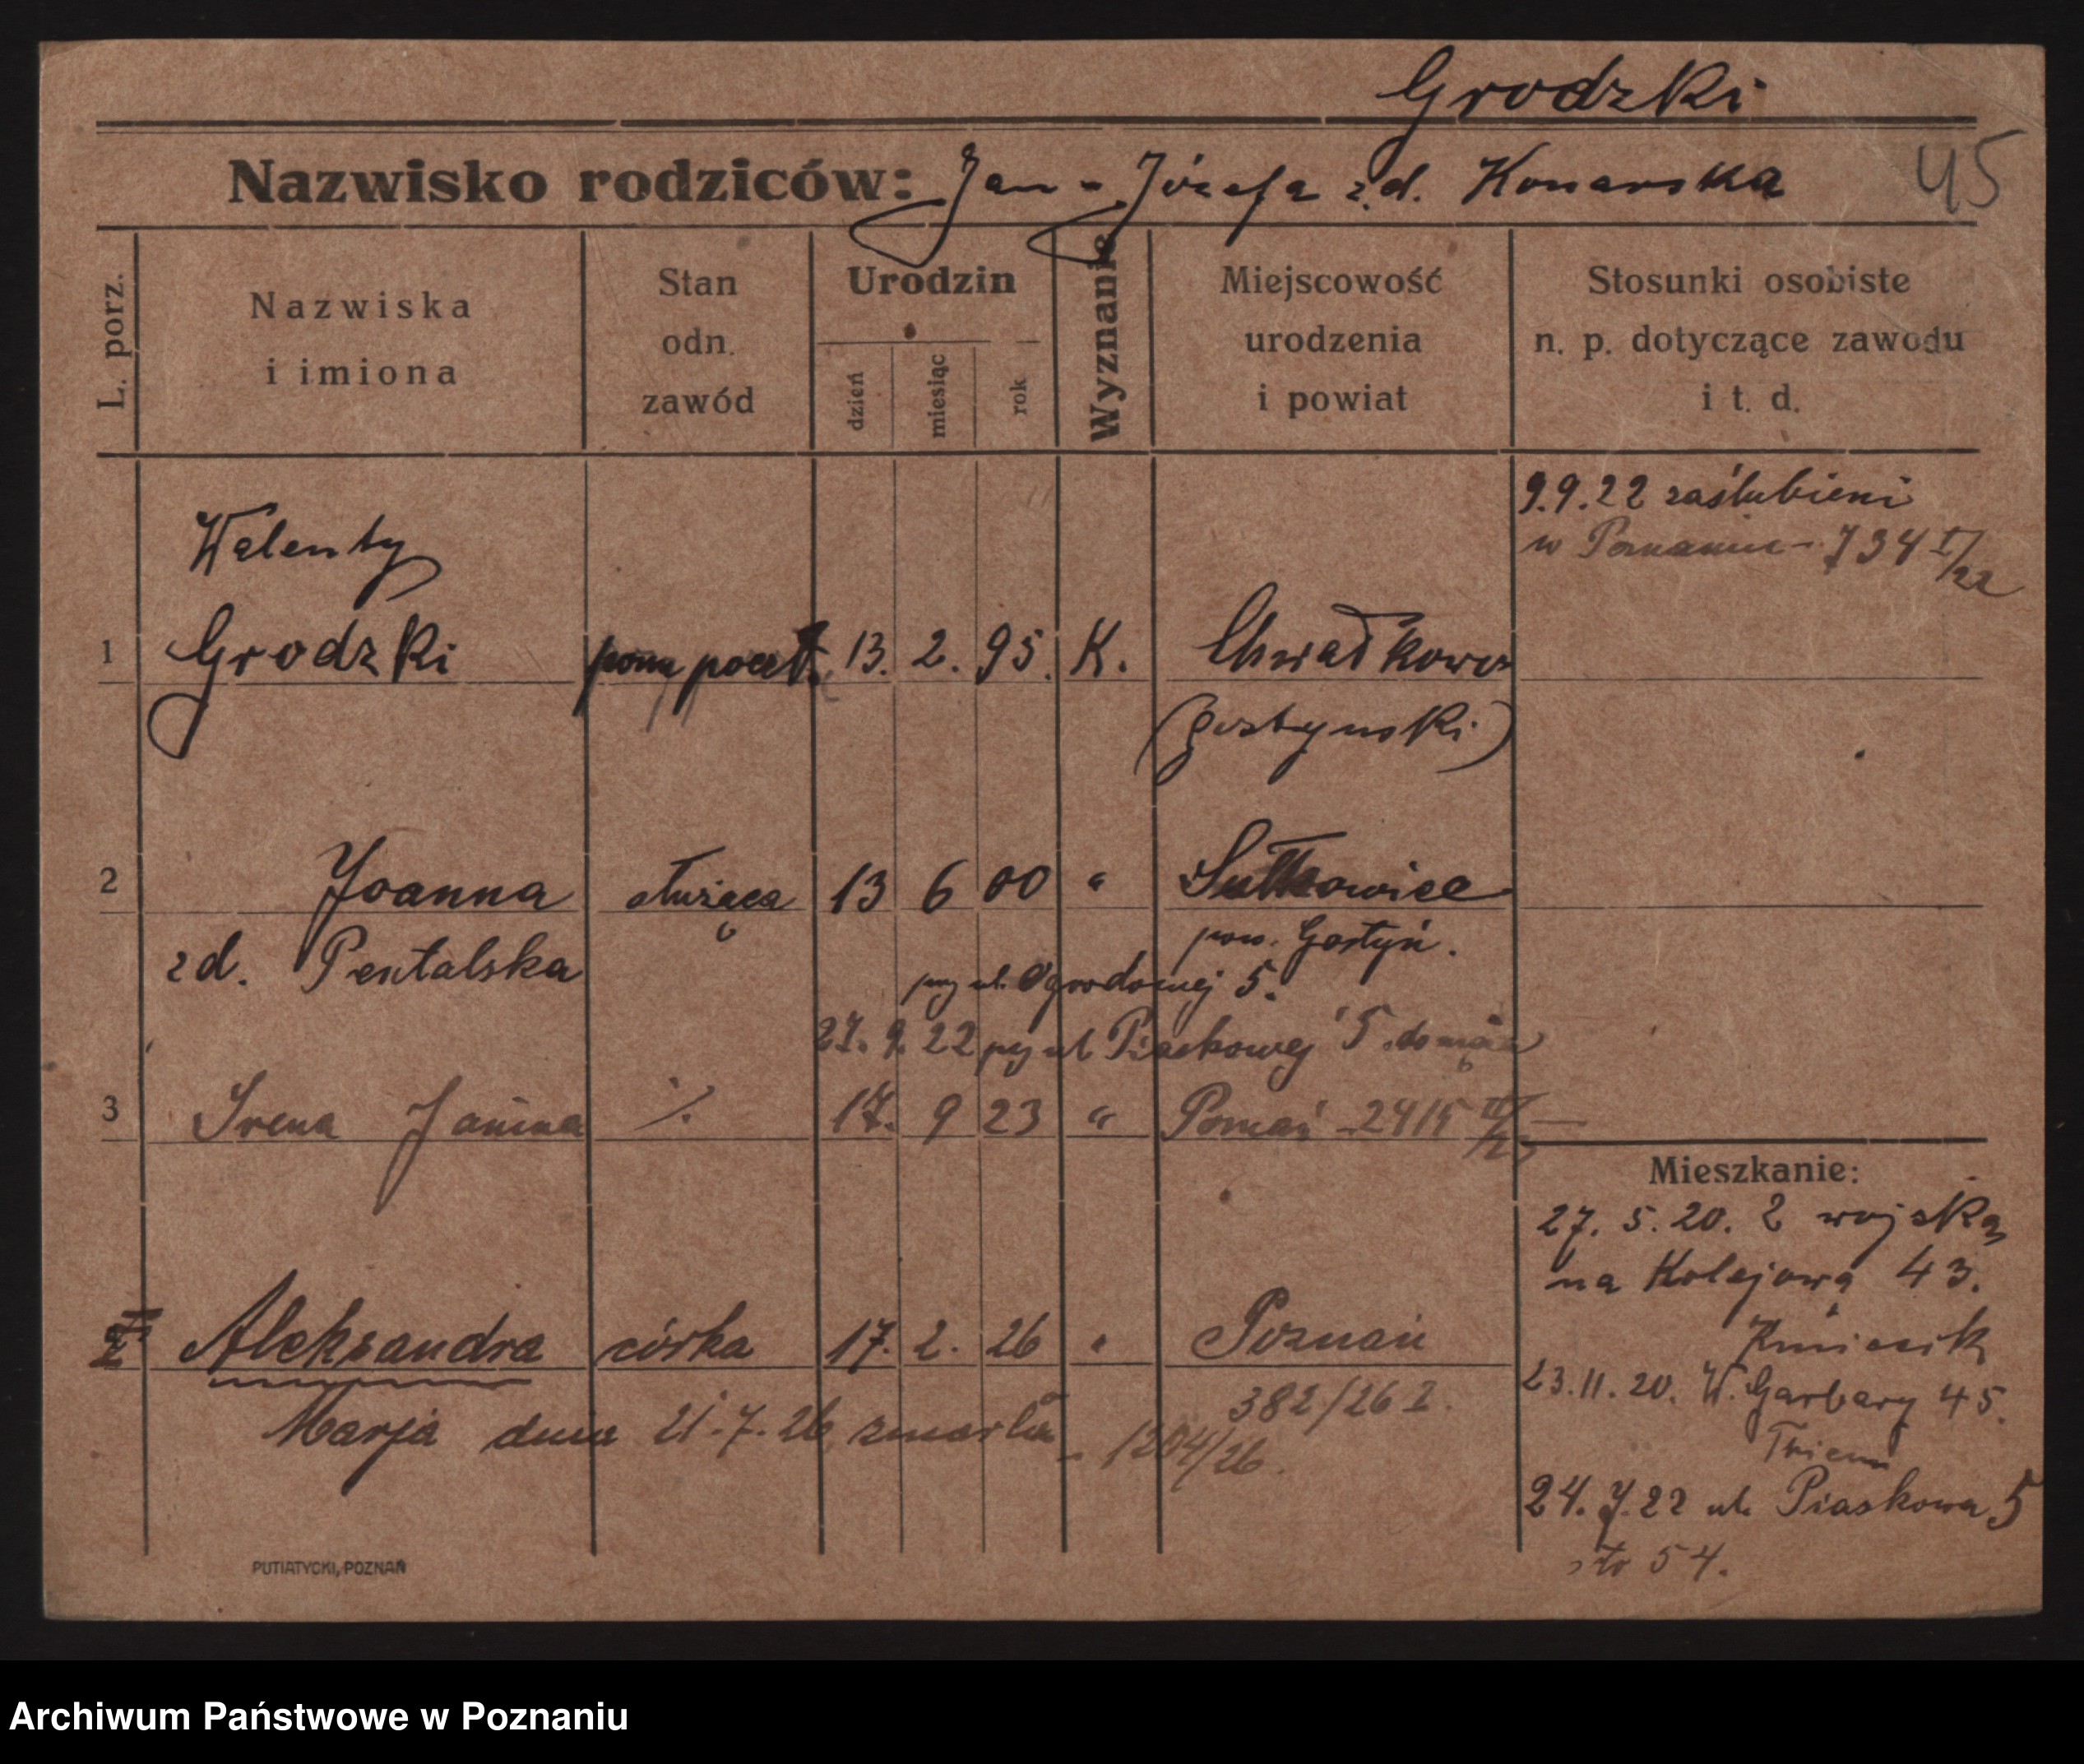 Grodzki
Nazwisko rodziców: Jan - Józefa z d. Konarska 45
L. porz.
Nazwiska
i imiona
Stan
odn.
zawód
Urodzin
dzień
miesiąc
rok
Wyznanie
Miejscowość
urodzenia
i powiat
Stosunki osobiste
n. p. dotyczące zawodu
i t. d.
9.9.22 zaślubieni
w Poznaniu - 734 I/22
Walenty
1 Grodzki pom poczt. 13. 2. 95. K. Chwałkowo
(gostynski)
2 Joanna służąca 13 6 00 " Sułkowice
pow. Gostyń.
zd. Pentalska
przy ul. Ogrodowej 5.
27. 9. 22 przy ul Piaskowej 5 do męża
3 Irena Janina ./. 17. 9 23 " Poznań - 2415 II/23
Mieszkanie:
27. 5. 20. z wojska
na Kolejową 43.
Kmiecik
23.11.20. W. Garbary 45.
Thiem
24. 7. 22 ul. Piaskowa 5
54.
Aleksandra córka 17. 2. 26 " Poznań
382/26 I.
Marja dnia 21.7.26 zmarła - 1204/26.
PUTIATYCKI, POZNAŃ
Archiwum Państwowe w Poznaniu